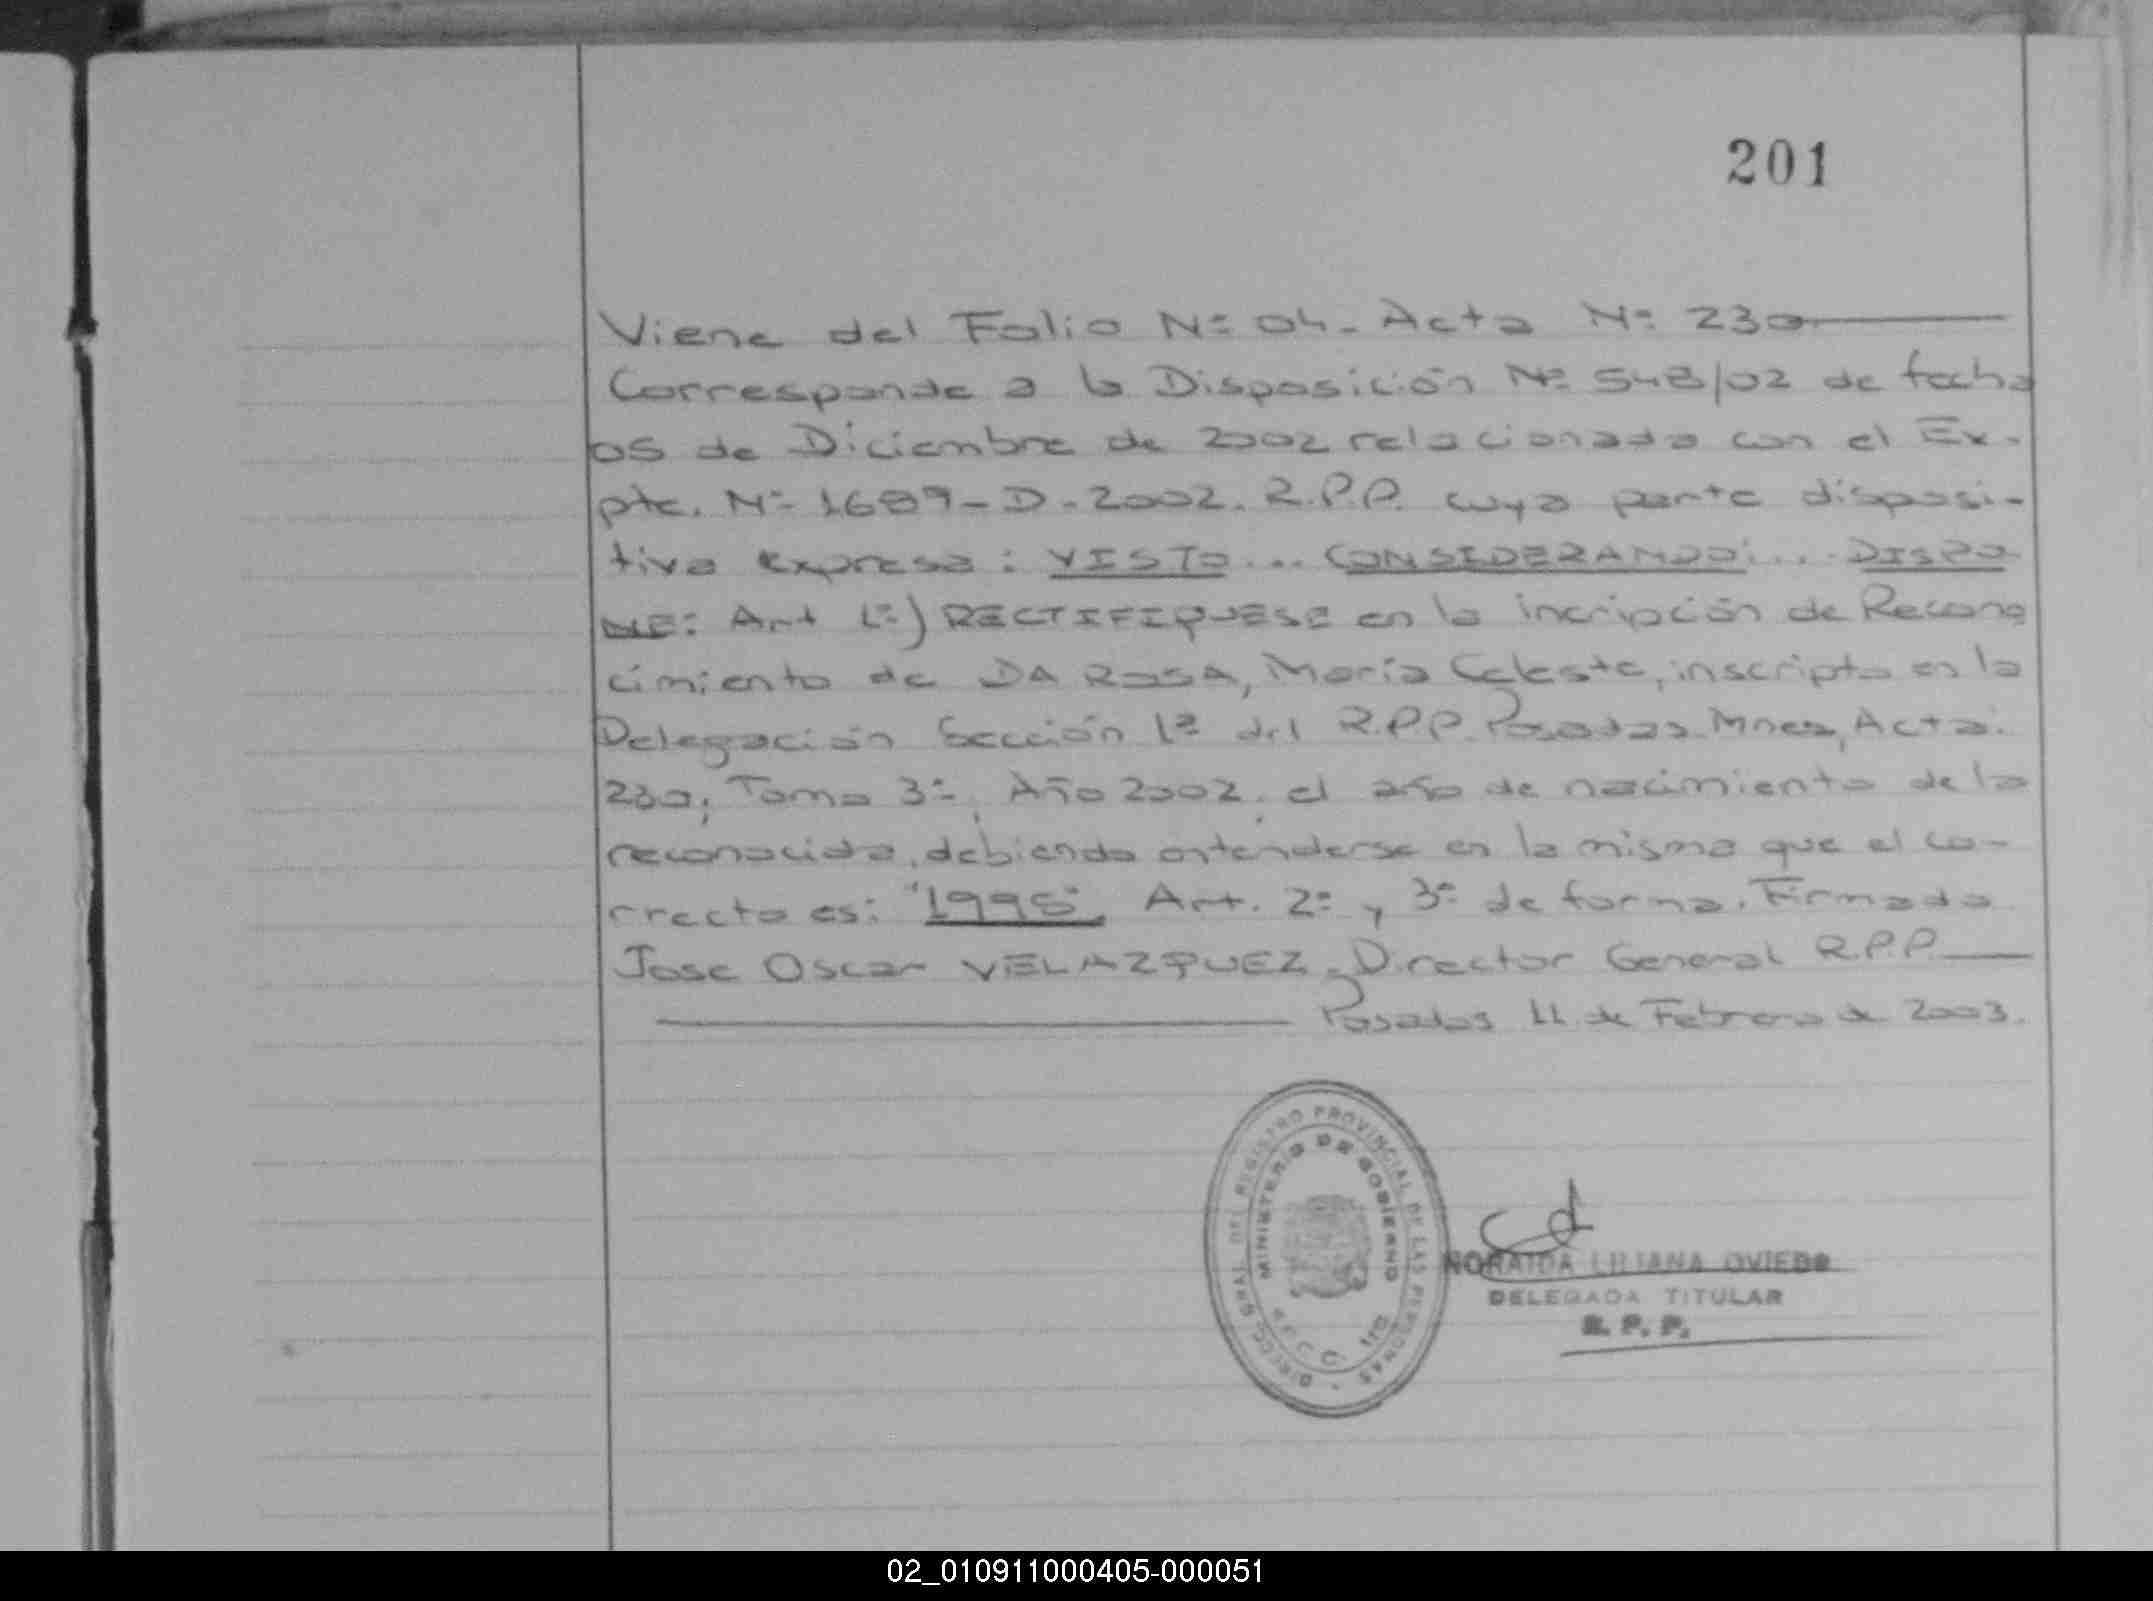 201
Viene del Folio Nº 04- Acta Nº 230
Corresponde a la Disposición Nº 548/02 de fecha
05 de Diciembre de 2002 relacionada con el Ex-
pte. Nº 1689-D-2002. R.P.P. cuya parte disposi-
tiva expresa: VISTO... CONSIDERANDO:... DISPO
NE: Art 1º) RECTIFIQUESE en la incripción de Recono
cimiento de DA ROSA, María Celeste, inscripta en la
Delegación Sección 1ª del R.P.P. Posadas Mnes, Acta:
230; Tomo 3º, Año 2002, el año de nacimiento de la
reconocida, debiendo entenderse en la misma que el co-
rrecto es: "1998". Art. 2º y 3º de forma. Firmado
Jose Oscar VELAZQUEZ, Director General R.P.P.
Posadas 11 de Febrero de 2003.
DIRECC. GRAL. DEL REGISTRO PROVINCIAL DE LAS PERSONAS
MINISTERIO DE GOBIERNO
NORAIDA LILIANA OVIEDO
DELEGADA TITULAR
R. P. P.
02_010911000405-000051